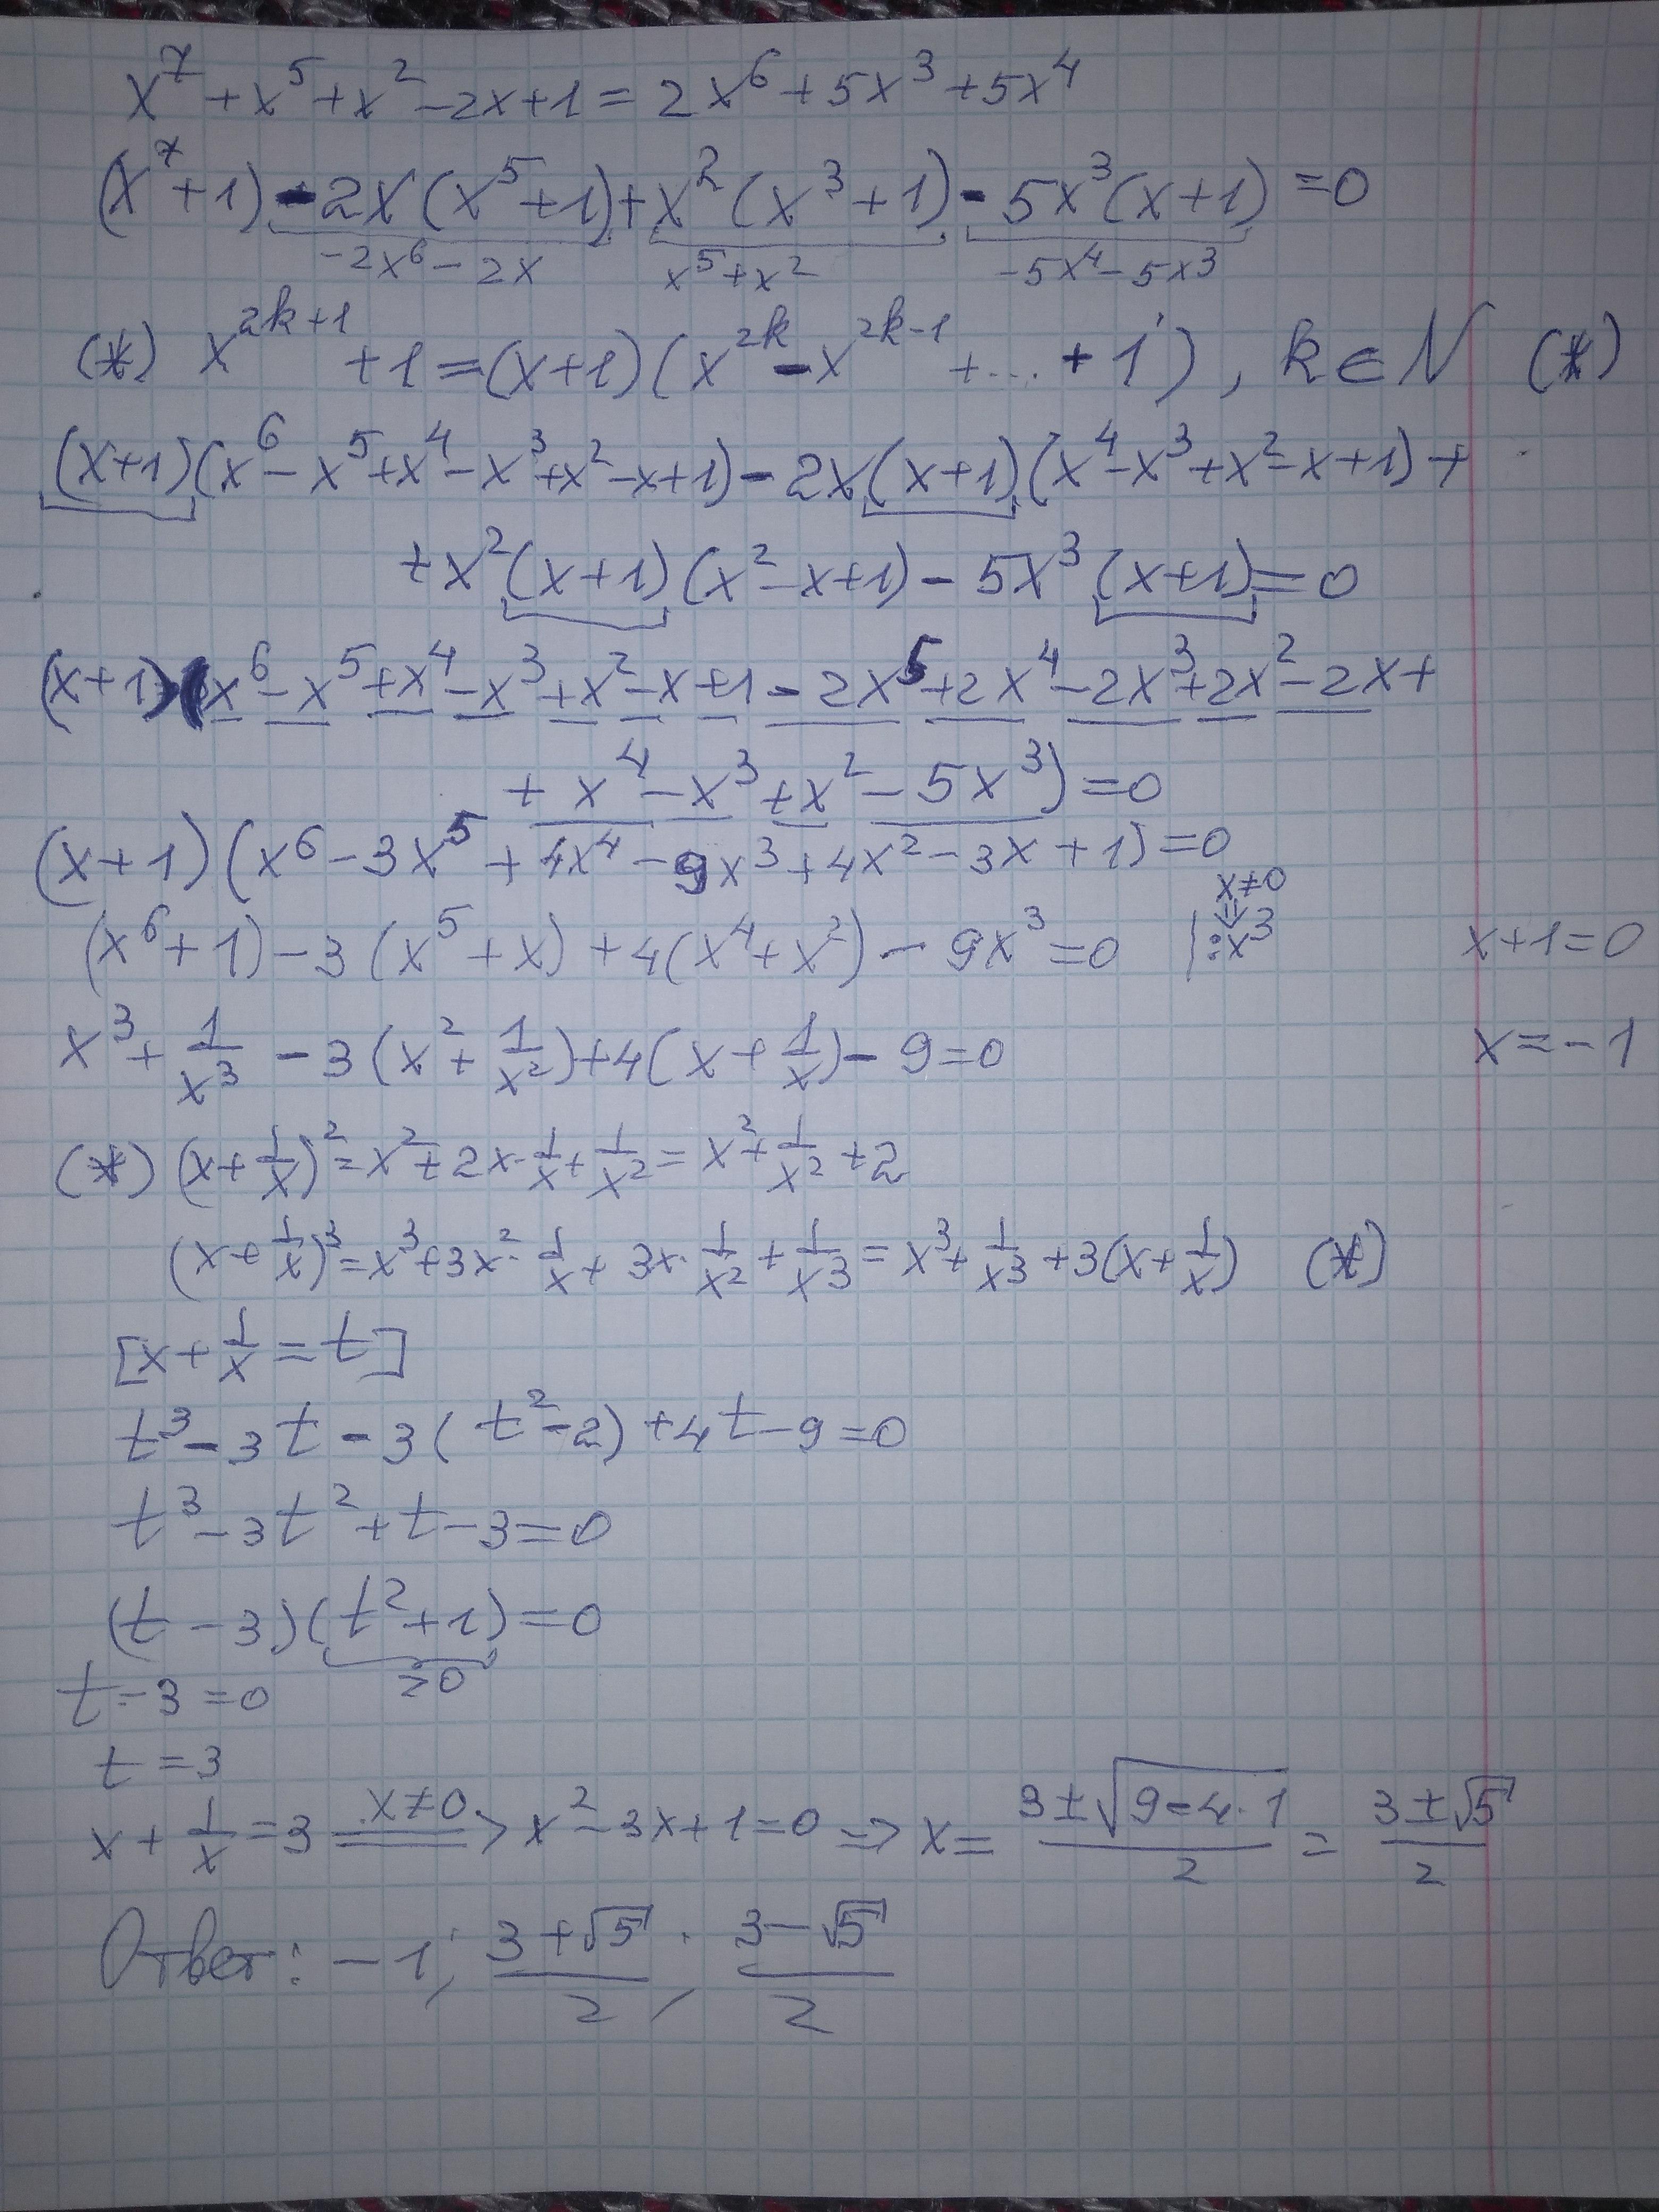 x⁷+x⁵+x²-2x+1=2x⁶+5x³+5x⁴
(x⁷+1)-2x(x⁵+1)+x²(x³+1)-5x³(x+1)=0
-2x⁶-2x x⁵+x² -5x⁴-5x³
(*) x^(2k+1)+1=(x+1)(x^(2k)-x^(2k-1)+...+1), k∈N (*)
(x+1)(x⁶-x⁵+x⁴-x³+x²-x+1)-2x(x+1)(x⁴-x³+x²-x+1)+
+x²(x+1)(x²-x+1)-5x³(x+1)=0
(x+1)(x⁶-x⁵+x⁴-x³+x²-x+1-2x⁵+2x⁴-2x³+2x²-2x+
+x⁴-x³+x²-5x³)=0
(x+1)(x⁶-3x⁵+4x⁴-9x³+4x²-3x+1)=0
x≠0
(x⁶+1)-3(x⁵+x)+4(x⁴+x²)-9x³=0 |:x³ x+1=0
x³+1/x³-3(x²+1/x²)+4(x+1/x)-9=0 x=-1
(*) (x+1/x)²=x²+2x·1/x+1/x²=x²+1/x²+2
(x+1/x)³=x³+3x²·1/x+3x·1/x²+1/x³=x³+1/x³+3(x+1/x) (*)
[x+1/x=t]
t³-3t-3(t²-2)+4t-9=0
t³-3t²+t-3=0
(t-3)(t²+1)=0
t-3=0 >0
t=3
x+1/x=3 =x≠0=> x²-3x+1=0 => x=(3±√(9-4·1))/2=(3±√5)/2
Ответ: -1; (3+√5)/2; (3-√5)/2